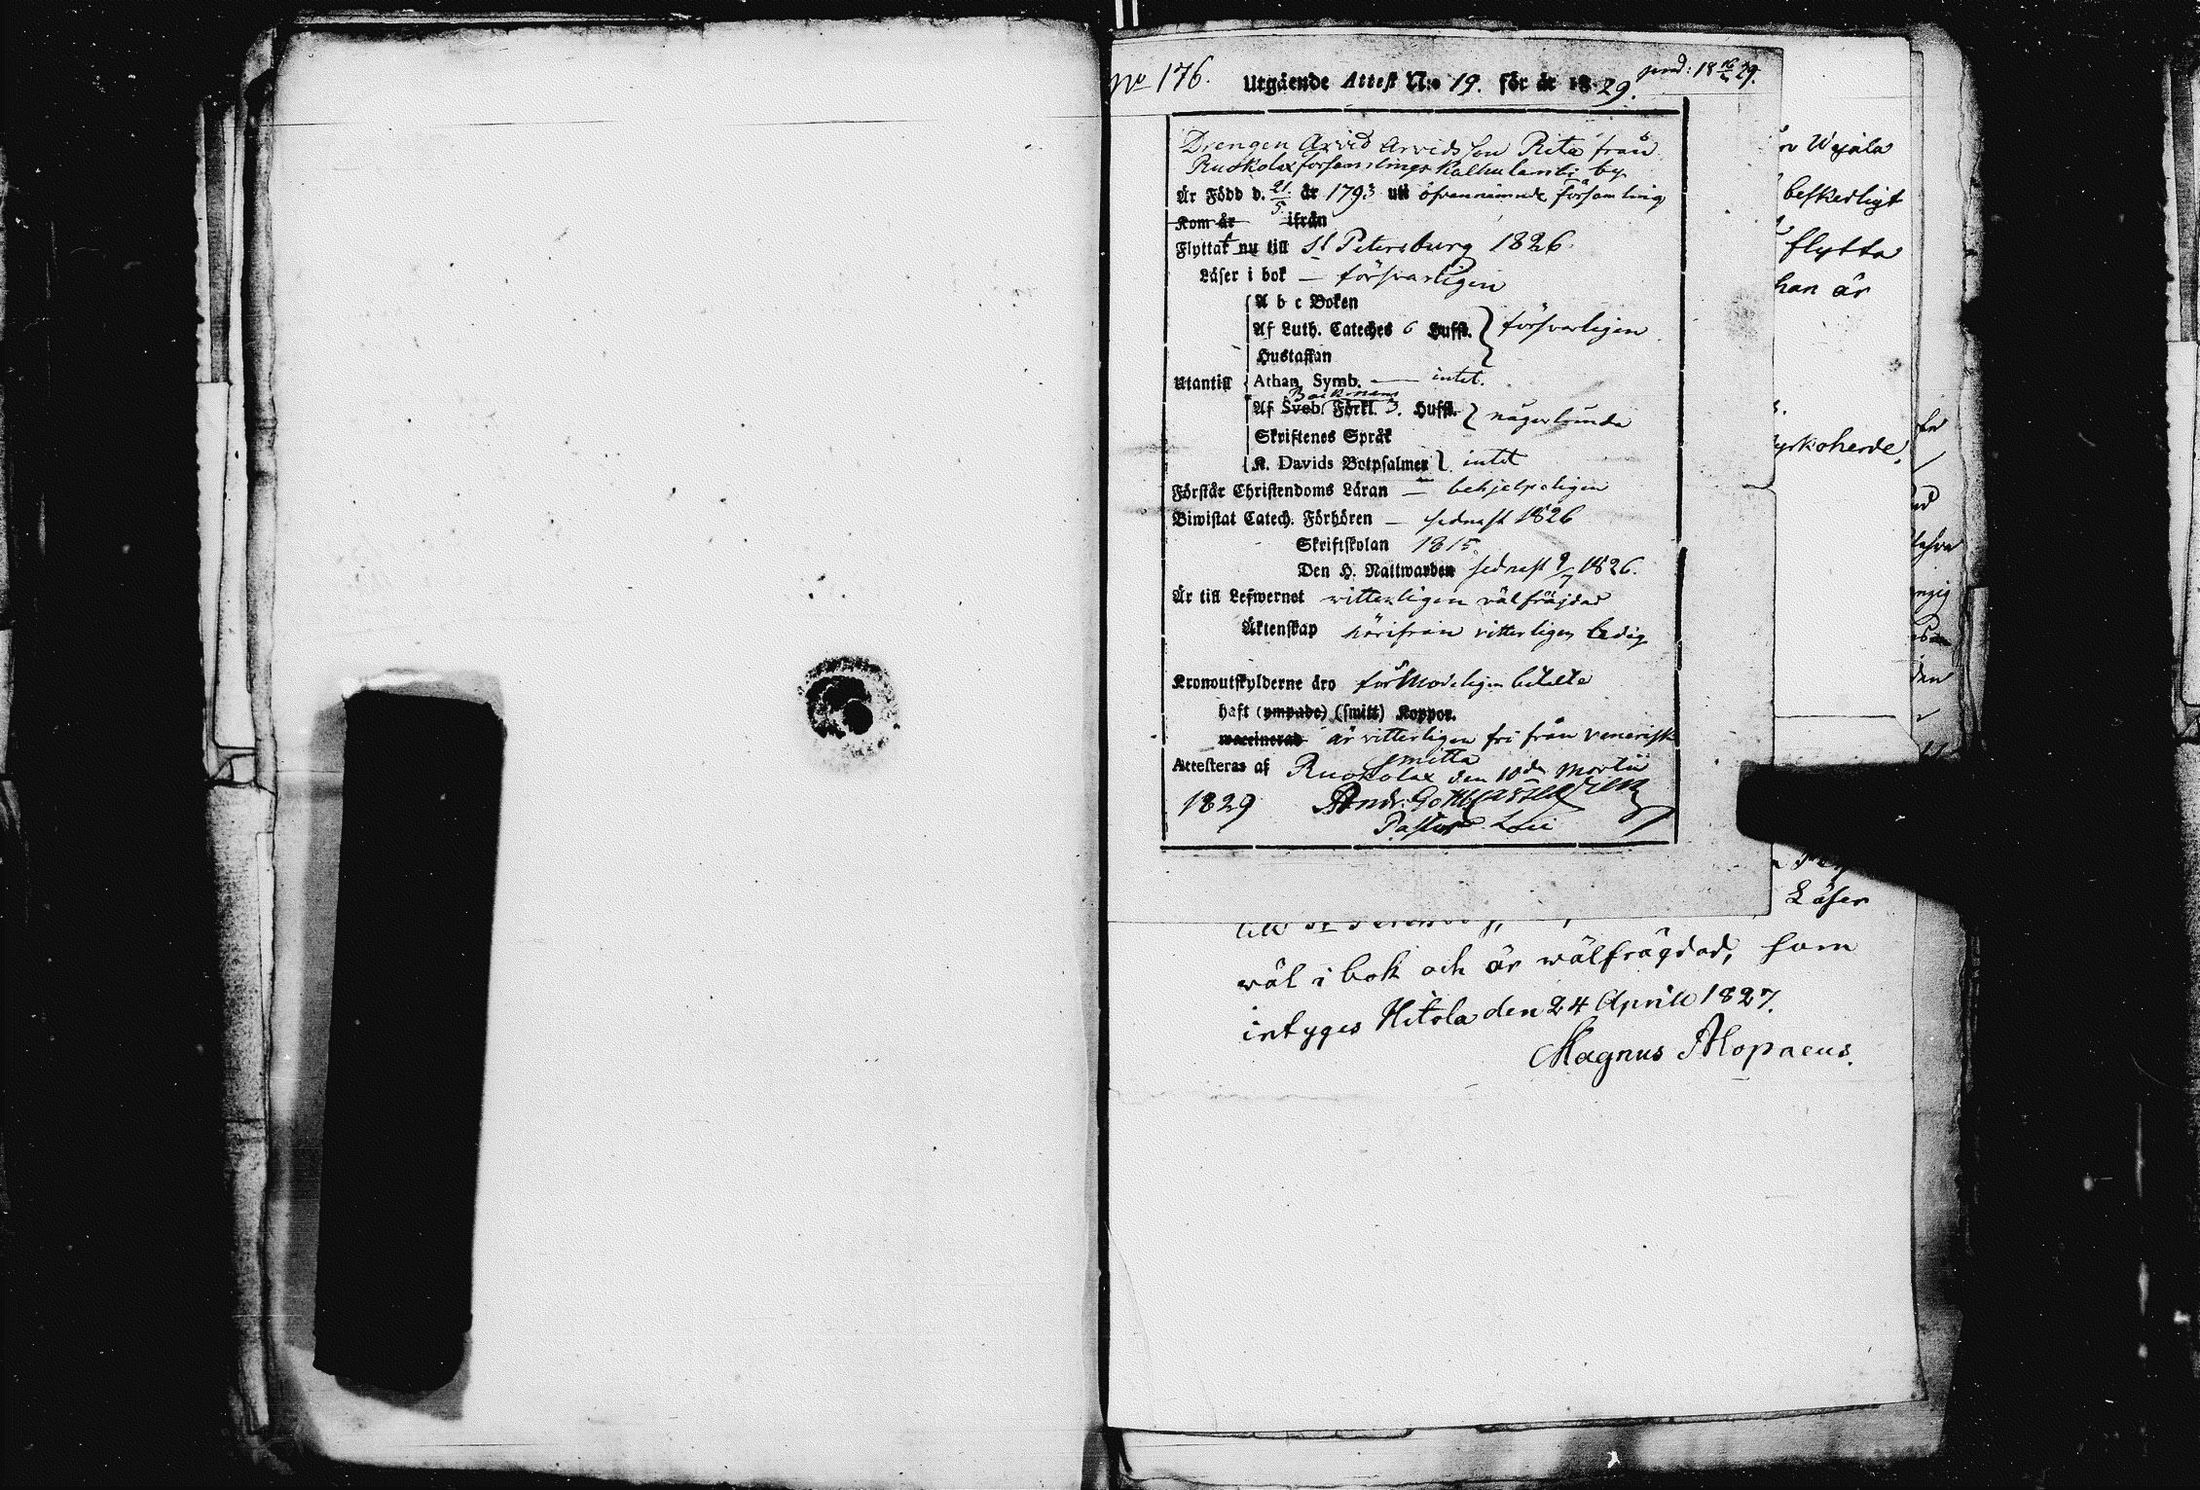 No 176. Utgående Attest N:o 19. för år 1829. prod: 18 16/4 29.
Drengen Arvid Arvidsson Rita från
Ruokolax församlings Kalhulambi by
Är Född d. 21/5 år 1793 uti ofvannämnde församling
Kom år ifrån
Flyttat nu till St Petersburg 1826.
Läser i bok — försvarligen
A b c Boken
Af Luth. Cateches 6 Hufst. försvarligen
Hustaflan
Utantill Athan. Symb. — intet.
Af Sveb. Förkl. 3. Hufst. någorlunda
Skriftenes Språk
K. Davids Botpsalmer intet
Förstår Christendoms Läran — behjelpeligen
Biwistat Catech. Förhören — sednast 1826
Skriftskolan 1815.
Den H. Nattwarden sednast 9/7 1826.
Är till Lefwernet vitterligen välfräjdad
Äktenskap härifrån vitterligen ledig
Kronoutskylderne äro förmodeligen betalta
haft (ympade) (smitt) Koppor.
waccinerad är vitterligen fri från venerisk
smitta
Attesteras af Ruokolax den 10de Martii
1829 Andr. Gottl.
Pastor Loci
Wejala
beskedligt
flytta
han är
yrkoherde.
Läser
wäl i bok och är wälfrägdad, som
intyges Hitola den 24 Aprill 1827.
Magnus Alopaeus.